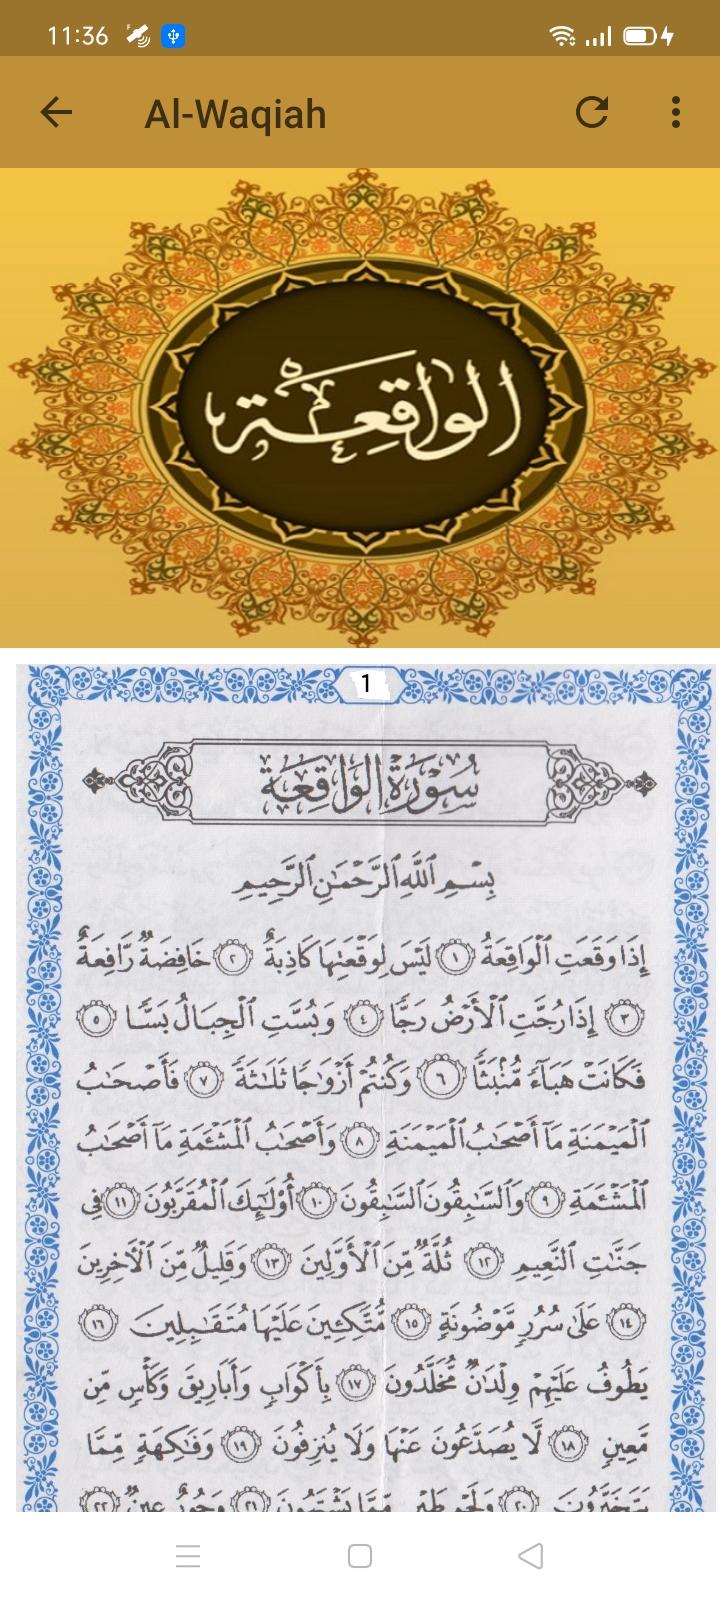 11:36
Al-Waqiah
الواقعة
1
سُورَةُ الوَاقِعَة
بِسْمِ ٱللَّهِ ٱلرَّحْمَٰنِ ٱلرَّحِيمِ
إِذَا وَقَعَتِ ٱلْوَاقِعَةُ ١ لَيْسَ لِوَقْعَتِهَا كَاذِبَةٌ ٢ خَافِضَةٌ رَّافِعَةٌ
٣ إِذَا رُجَّتِ ٱلْأَرْضُ رَجًّا ٤ وَبُسَّتِ ٱلْجِبَالُ بَسًّا ٥
فَكَانَتْ هَبَآءً مُّنۢبَثًّا ٦ وَكُنتُمْ أَزْوَٰجًا ثَلَٰثَةً ٧ فَأَصْحَٰبُ
ٱلْمَيْمَنَةِ مَآ أَصْحَٰبُ ٱلْمَيْمَنَةِ ٨ وَأَصْحَٰبُ ٱلْمَشْـَٔمَةِ مَآ أَصْحَٰبُ
ٱلْمَشْـَٔمَةِ ٩ وَٱلسَّٰبِقُونَ ٱلسَّٰبِقُونَ ١٠ أُو۟لَٰٓئِكَ ٱلْمُقَرَّبُونَ ١١ فِى
جَنَّٰتِ ٱلنَّعِيمِ ١٢ ثُلَّةٌ مِّنَ ٱلْأَوَّلِينَ ١٣ وَقَلِيلٌ مِّنَ ٱلْءَاخِرِينَ
١٤ عَلَىٰ سُرُرٍ مَّوْضُونَةٍ ١٥ مُّتَّكِـِٔينَ عَلَيْهَا مُتَقَٰبِلِينَ ١٦
يَطُوفُ عَلَيْهِمْ وِلْدَٰنٌ مُّخَلَّدُونَ ١٧ بِأَكْوَابٍ وَأَبَارِيقَ وَكَأْسٍ مِّن
مَّعِينٍ ١٨ لَّا يُصَدَّعُونَ عَنْهَا وَلَا يُنزِفُونَ ١٩ وَفَٰكِهَةٍ مِّمَّا
يَتَخَيَّرُونَ ٢٠ وَلَحْمِ طَيْرٍ مِّمَّا يَشْتَهُونَ ٢١ وَحُورٌ عِينٌ ٢٢